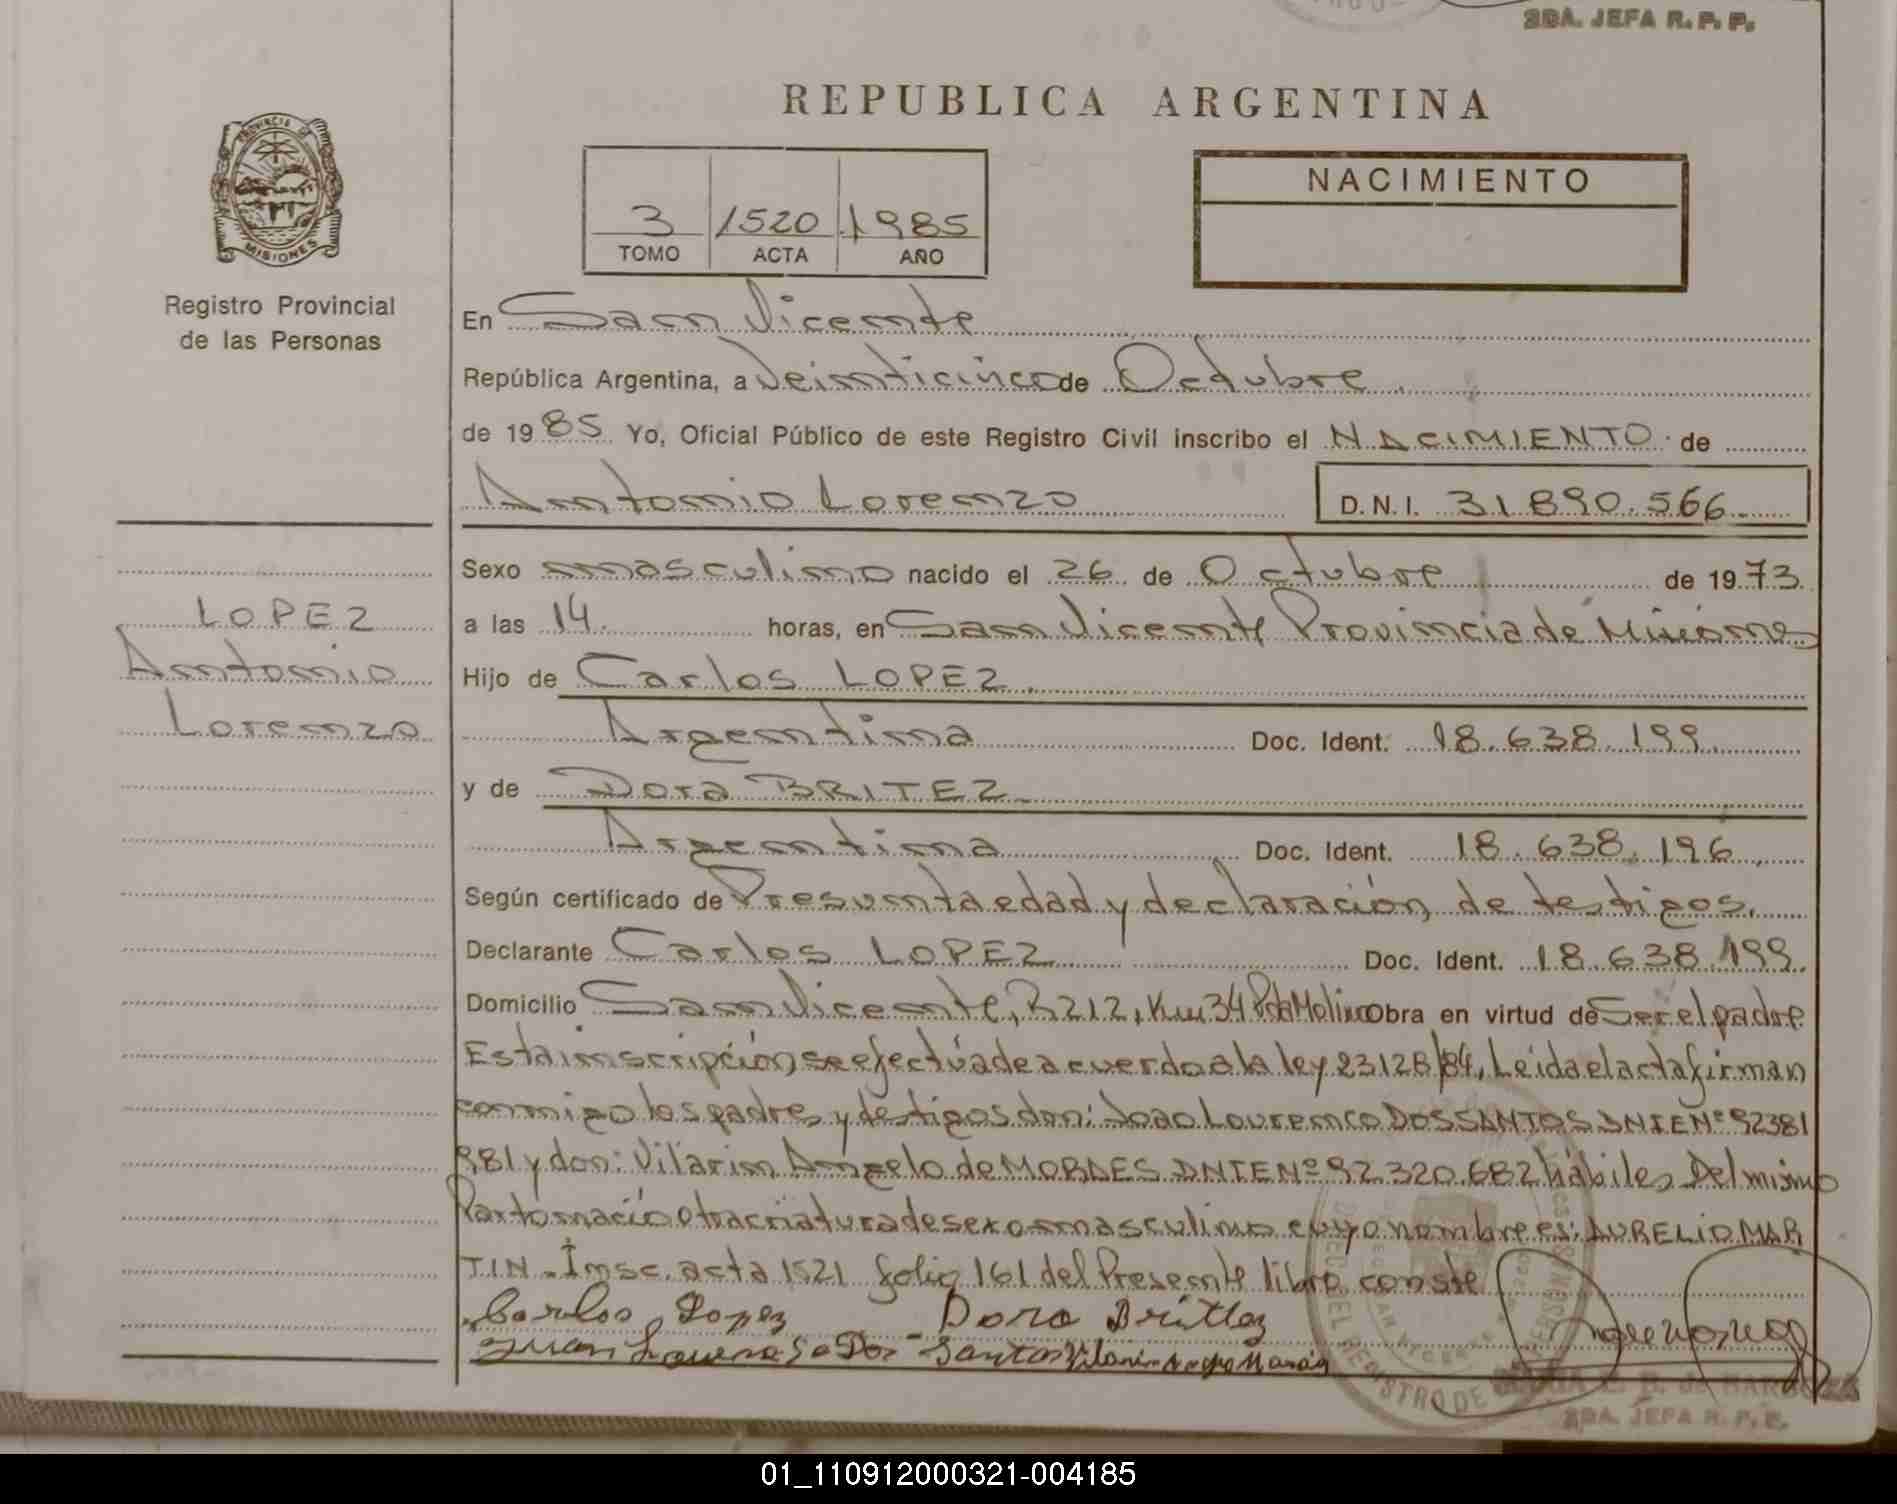 2DA. JEFA R. P. P.
REPUBLICA ARGENTINA
PROVINCIA DE
MISIONES
Registro Provincial
de las Personas
3 1520 1985
TOMO ACTA AÑO
NACIMIENTO
En San Vicente
República Argentina, a Veinticinco de Octubre.
de 1985 Yo, Oficial Público de este Registro Civil inscribo el NACIMIENTO. de
Antonio Lorenzo D.N.I. 31 890.566
Sexo masculino nacido el 26 de Octubre de 1973
a las 14. horas, en San Vicente Provincia de Misiones
Hijo de Carlos LOPEZ.
Argentina Doc. Ident. 18.638.199.
y de Dora BRITEZ
Argentina Doc. Ident. 18.638.196.
Según certificado de Presunta edad y declaración de testigos.
Declarante Carlos LOPEZ Doc. Ident. 18.638.199.
Domicilio San Vicente, R212, Km 34 Pda Molino obra en virtud de Ser el padre
Esta inscripción se efectúa de acuerdo a la ley 23128/84, Leida el acta firman
conmigo los padres y testigos don: Joao Lourenco DOS SANTOS DNIE Nº 92381
981 y don: Vilarim Angelo de MORAES DNIE Nº 92.320.682 hábiles Del mismo
Parto nació otra criatura de sexo masculino cuyo nombre es: AURELIO MAR
TIN. Insc. acta 1521 folio 161 del Presente libro conste
Carlos Lopez Dora Brittez
Juan Dos Santos
LOPEZ
Antonio
Lorenzo
REGISTRO DE
2DA. JEFA R. P. P.
01_110912000321-004185